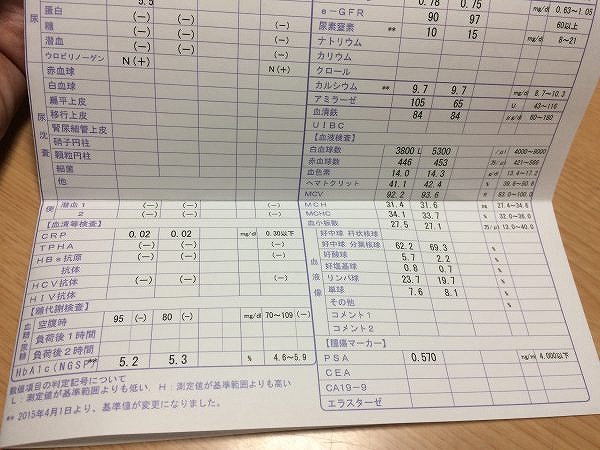 5.5
蛋白 (-) (-) (-)
糖 (-) (-) (-)
潜血 (-) (-)
ウロビリノーゲン N(+) N(+)
赤血球
白血球
扁平上皮
移行上皮
腎尿細管上皮
硝子円柱
顆粒円柱
細菌
他
尿
尿沈査
便 潜血 1 (-) (-) (-)
2 (-) (-) (-)
【血清等検査】
CRP 0.02 0.02 mg/dl 0.30以下
TPHA (-) (-)
HBs抗原 (-) (-)
抗体
HCV抗体 (-) (-)
HIV抗体
【糖代謝検査】
血糖・尿糖
空腹時 95 (-) 80 (-) mg/dl 70~109 (-)
負荷後1時間
負荷後2時間
HbA1c(NGSP) 5.2 5.3 % 4.6~5.9
数値項目の判定記号について
L:測定値が基準範囲よりも低い、H:測定値が基準範囲よりも高い
** 2015年4月1日より、基準値が変更になりました。
0.78 0.75 mg/dl 0.63~1.05
e-GFR 90 97 60以上
尿素窒素 ** 10 15 mg/dl 8~21
ナトリウム
カリウム
クロール
カルシウム ** 9.7 9.7 mg/dl 8.7~10.3
アミラーゼ 105 65 U 43~116
血清鉄 84 84 μg/dl 60~180
UIBC
【血液検査】
白血球数 3800 L 5300 /μl 4000~9000
赤血球数 446 453 万/μl
血色素 14.0 14.3 g/dl 13.4~17.2
ヘマトクリット 41.1 42.4 %
MCV 92.2 93.6 fl 83.0~100.0
MCH 31.4 31.6 pg 27.4~34.6
MCHC 34.1 33.7 % 32.0~36.0
血小板数 27.5 27.1 万/μl 13.0~40.0
血液像
好中球 杆状核球
好中球 分葉核球 62.2 69.3 %
好酸球 5.7 2.2 %
好塩基球 0.8 0.7 %
リンパ球 23.7 19.7 %
単球 7.6 8.1 %
その他 %
コメント1
コメント2
【腫傷マーカー】
PSA 0.570 ng/ml 4.000以下
CEA
CA19-9
エラスターゼ